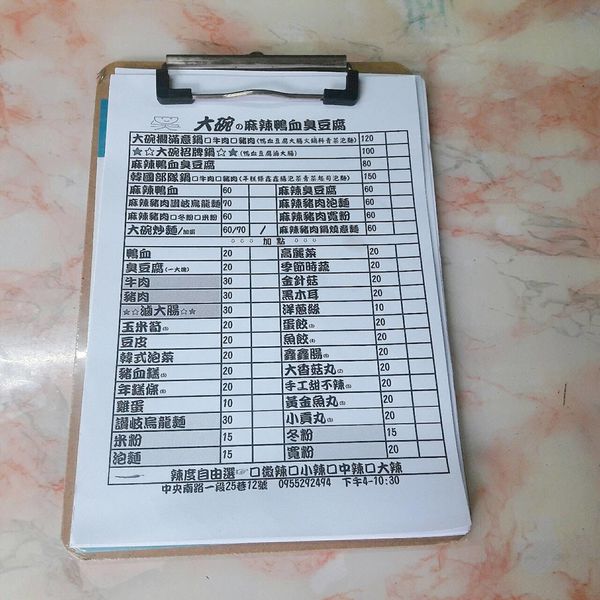 大碗の麻辣鴨血臭豆腐
大碗獨滿意鍋口牛肉口豬肉(鴨血豆腐大腸火鍋料青菜泡麵) 120
☆☆大碗招牌鍋☆☆(鴨血豆腐滷大腸) 100
麻辣鴨血臭豆腐 80
韓國部隊鍋口牛肉口豬肉(年糕條鑫鑫腸泡菜青菜起司泡麵) 150
麻辣鴨血 60 麻辣臭豆腐 60
麻辣豬肉讚岐烏龍麵 70 麻辣豬肉泡麵 60
麻辣豬肉口冬粉口米粉 60 麻辣豬肉寬粉 60
大碗炒麵/加蛋 60/70 / 麻辣豬肉鍋燒意麵 60
。。。 加點 。。。
鴨血 20 高麗菜 20
臭豆腐(一大塊) 20 季節時蔬 20
牛肉 30 金針菇 20
豬肉 30 黑木耳 20
☆☆滷大腸☆☆ 30 洋蔥絲 10
玉米筍(3) 20 蛋餃(3) 20
豆皮 20 魚餃(3) 20
韓式泡菜 20 鑫鑫腸(5) 20
豬血糕(5) 20 大香菇丸(2) 20
年糕條(5) 20 手工甜不辣(5) 20
雞蛋 10 黃金魚丸(3) 20
讚岐烏龍麵 30 小貢丸(5) 20
米粉 15 冬粉 15
泡麵 15 寬粉 20
辣度自由選☞口微辣口小辣口中辣口大辣
中央南路一段25巷12號 0955292494 下午4-10:30